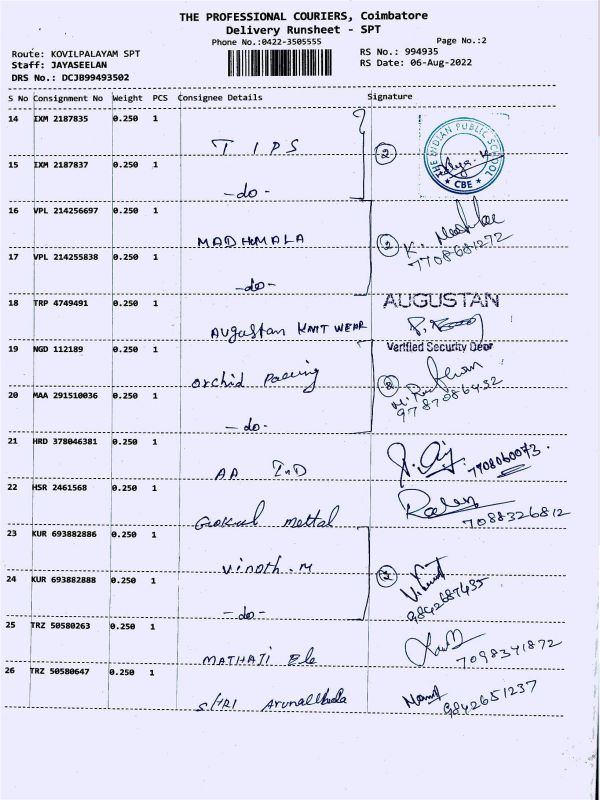 THE PROFESSIONAL COURIERS, Coimbatore
Delivery Runsheet - SPT
Phone No.:0422-3505555
Page No.:2
Route: KOVILPALAYAM SPT
RS No.: 994935
Staff: JAYASEELAN
RS Date: 06-Aug-2022
DRS No.: DCJB99493502
S No Consignment No Weight PCS Consignee Details Signature
14 IXM 2187835 0.250 1
TIPS
2
THE INDIAN PUBLIC SCHOOL
* CBE *
15 IXM 2187837 0.250 1
-do-
16 VPL 214256697 0.250 1
MADHUMALA
2
7708681272
17 VPL 214255838 0.250 1
-do-
18 TRP 4749491 0.250 1
Augustan KNIT WEAR
AUGUSTAN
Verified Security Dept
19 NGD 112189 0.250 1
orchid
9787086432
20 MAA 291510036 0.250 1
-do-
21 HRD 378046381 0.250 1
AP InD
7708060073.
22 HSR 2461568 0.250 1
Gokul mettal
7088326812
23 KUR 693882886 0.250 1
vinoth.m
24 KUR 693882888 0.250 1
-do-
9842687435
25 TRZ 50580263 0.250 1
MATHAJI Ele
7098371872
26 TRZ 50580647 0.250 1
SHRI
9842651237